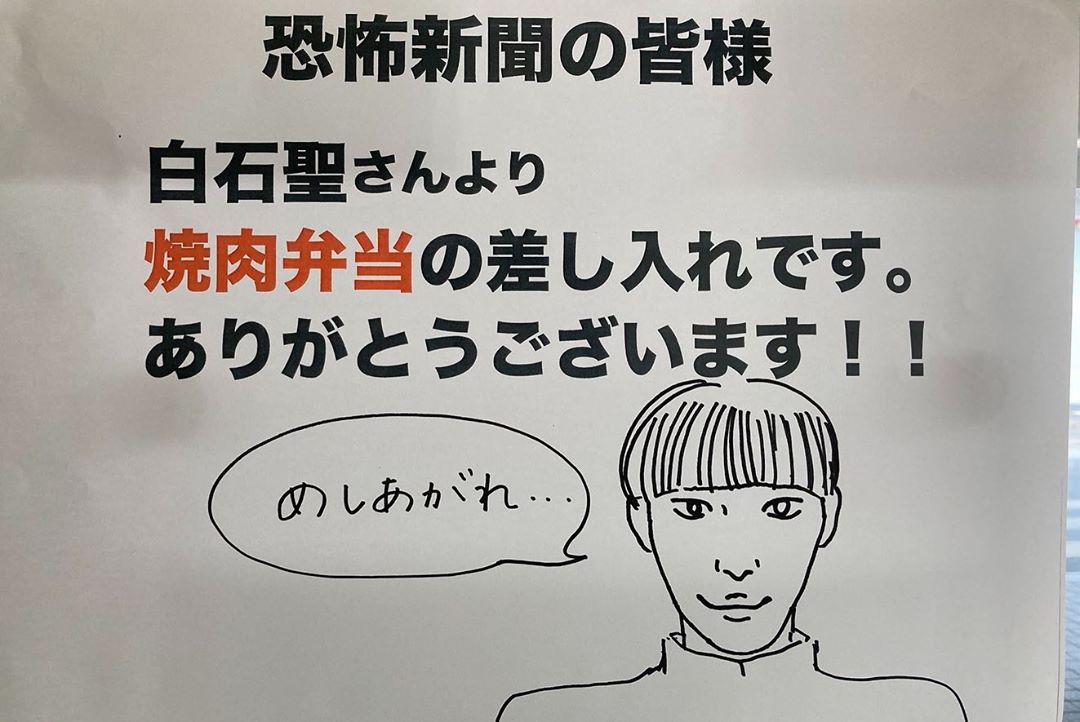 恐怖新聞の皆様
白石聖さんより
焼肉弁当の差し入れです。
ありがとうございます！！
めしあがれ…